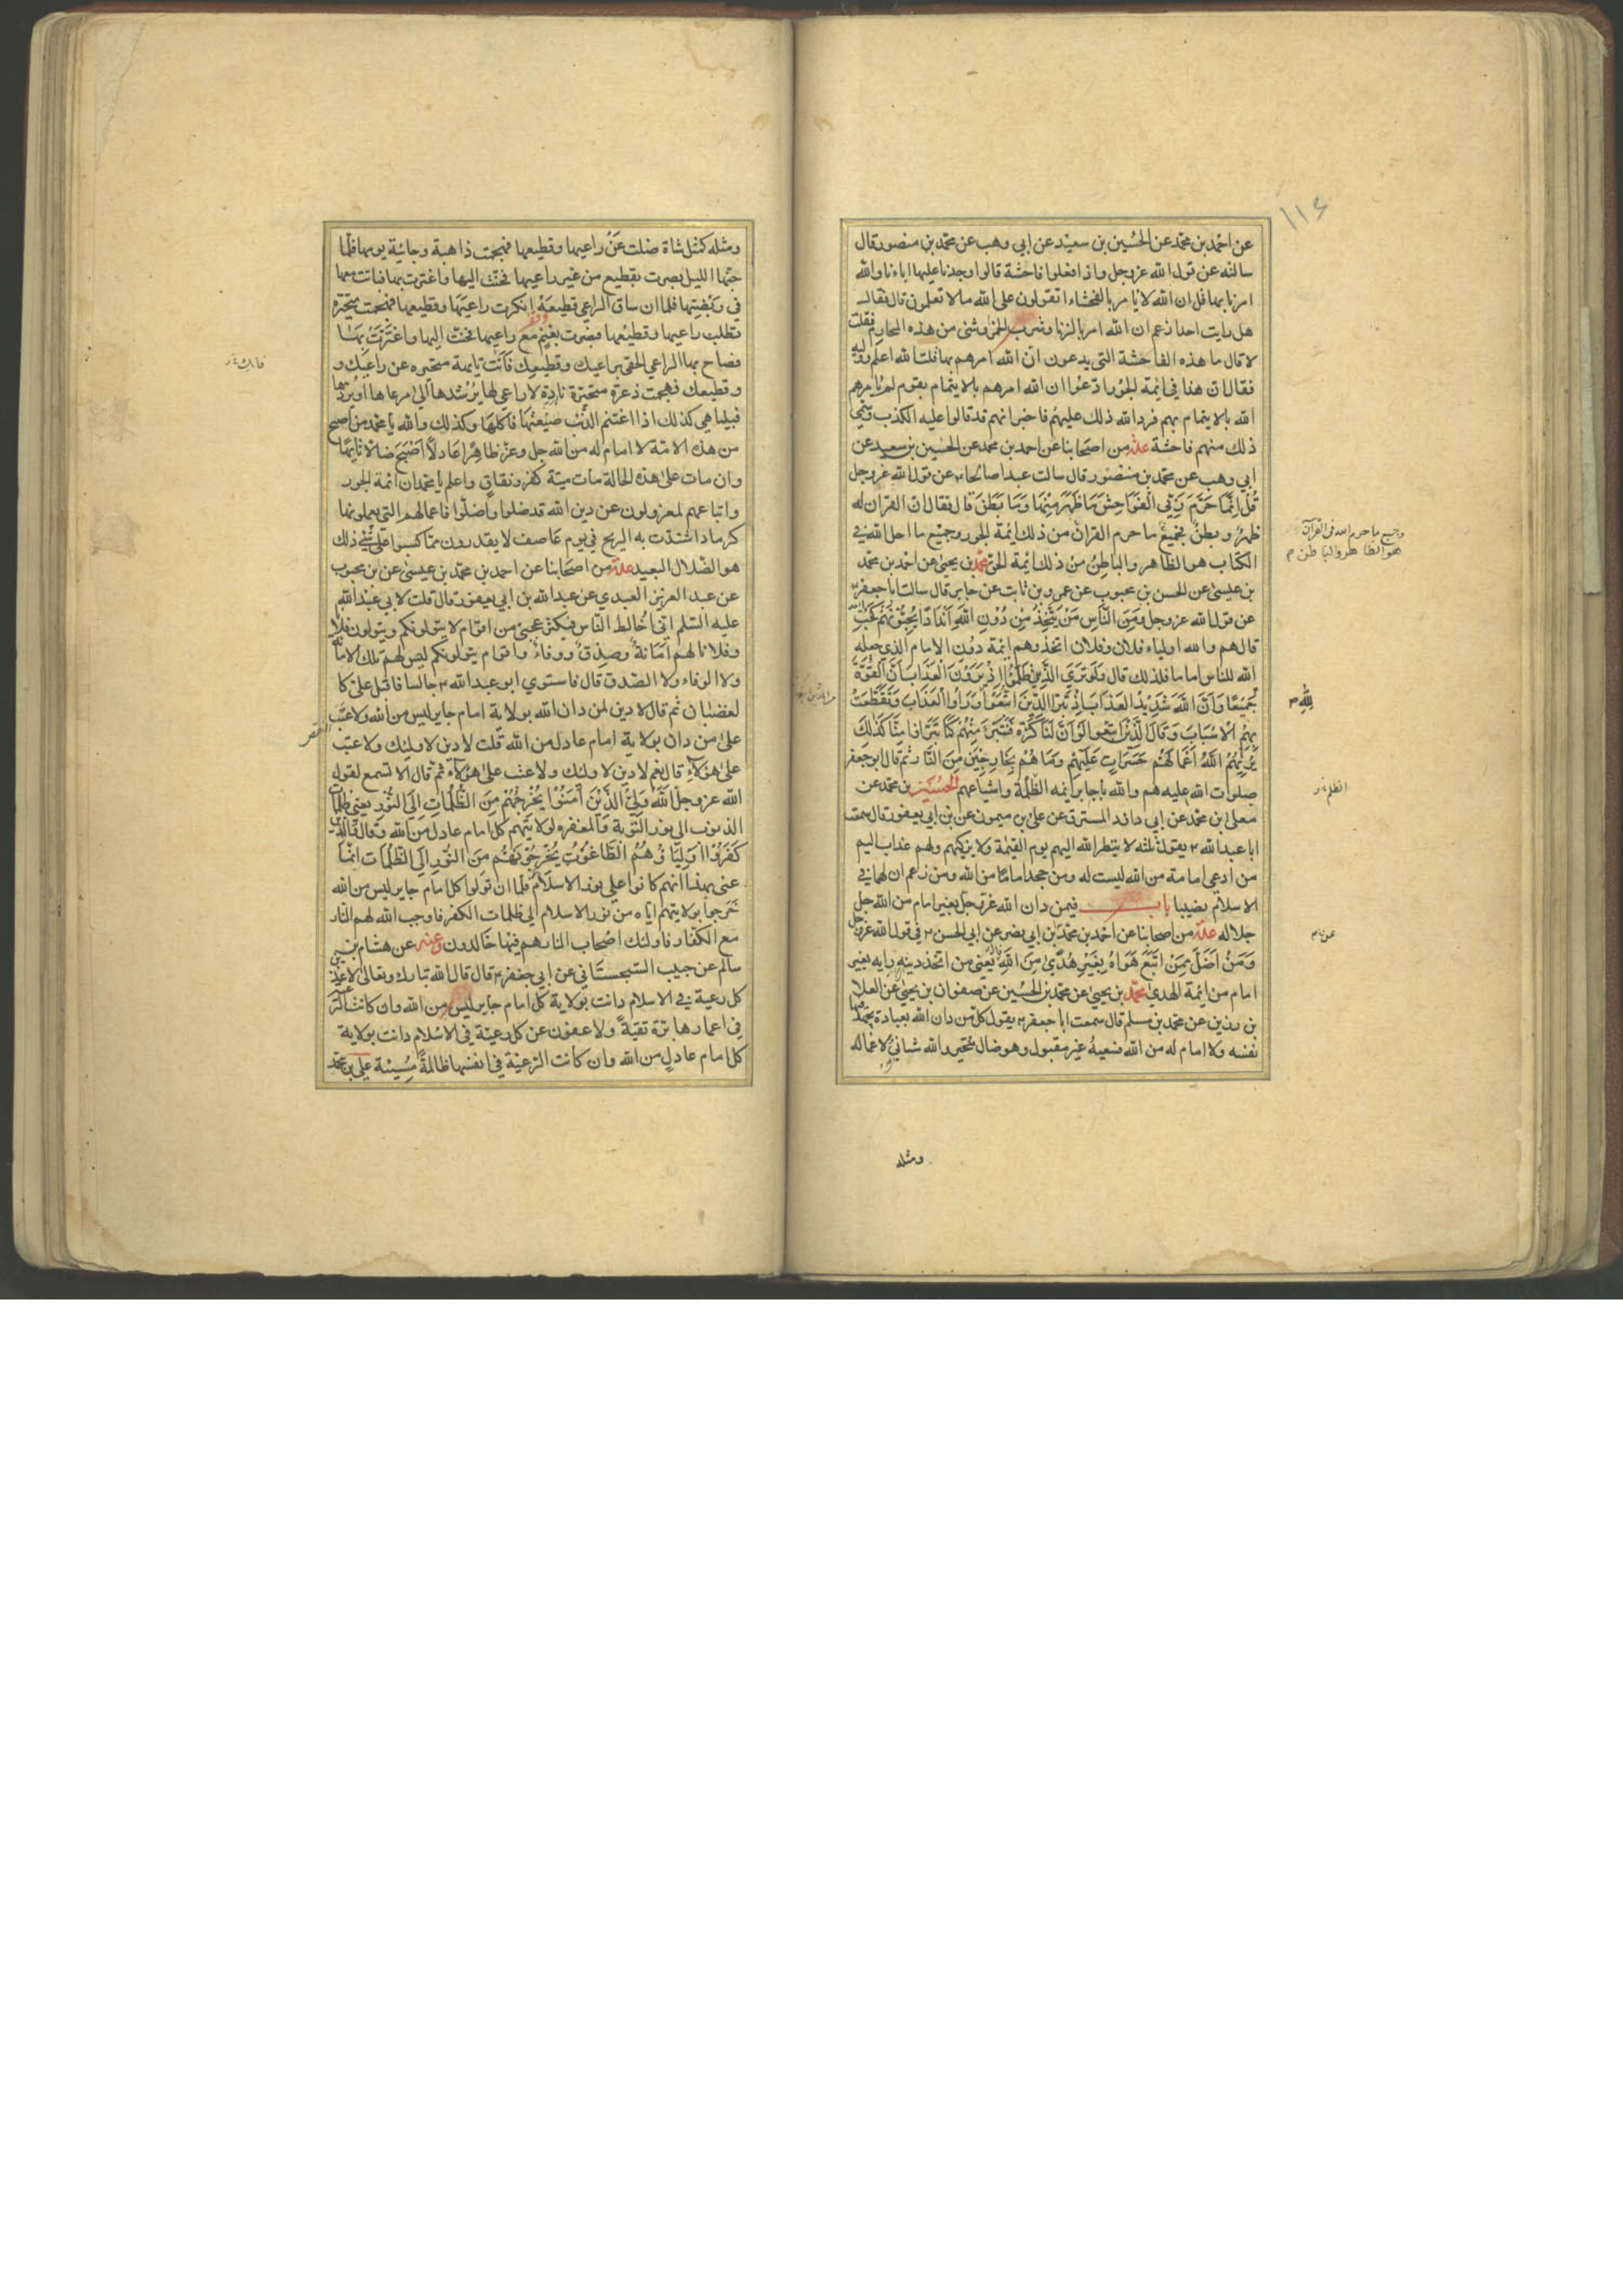 ١١٤
عن احمد بن محمد عن الحسين بن سعيد عن ابي وهب عن محمد بن منصور قال
سالته عن قول الله عز وجل واذا فعلوا فاحشة قالوا وجدنا عليها اباءنا والله
امرنا بها قل ان الله لا يامر بالفحشاء اتقولون على الله ما لا تعلمون قال فقال
هل رايت احدا زعم ان الله امر بالزنا وشرب الخمر وشئ من هذه المحارم فقلت
لا قال ما هذه الفاحشة التي يدعون ان الله امرهم بها قلت الله اعلم ووليه
فقال ان هذا في ائمة الجور ادعوا ان الله امرهم بالايتمام بقوم لم يامرهم
الله بالايتمام بهم فرد الله ذلك عليهم فاخبر انهم قد قالوا عليه الكذب وسمي
ذلك منهم فاحشة عدة من اصحابنا عن احمد بن محمد عن الحسين بن سعيد عن
ابي وهب عن محمد بن منصور قال سالت عبدا صالحا عن قول الله عز وجل
قُل اِنَّمَا حَرَّمَ رَبِّيَ الْفَوَاحِشَ مَا ظَهَرَ مِنْهَا وَمَا بَطَنَ قال فقال ان القران له
ظهر وبطن فجميع ما حرم القران من ذلك ائمة الجور وجميع ما احل الله في
الكتاب هو الظاهر والباطن من ذلك ائمة الحق محمد بن يحيى عن احمد بن محمد
بن عيسى عن الحسن بن محبوب عن عمرو بن ثابت عن جابر قال سالت ابا جعفر
عن قول الله عز وجل وَمِنَ النَّاسِ مَنْ يَتَّخِذُ مِنْ دُوْنِ اللهِ اَنْدَادًا يُحِبُّوْنَهُمْ كَحُبِّ الله
قال هم والله اولياء فلان وفلان اتخذوهم ائمة دون الامام الذي جعله
الله للناس اماما فلذلك قال وَلَوْ تَرَى الَّذِيْنَ ظَلَمُوْا اِذْ يَرَوْنَ الْعَذَابَ اَنَّ الْقُوَّةَ
جَمِيْعًا وَاَنَّ اللهَ شَدِيْدُ الْعَذَابِ اِذْ تَبَرَّا الَّذِيْنَ اتُّبِعُوْا وَرَاَوُا الْعَذَابَ وَتَقَطَّعَتْ
بِهِمُ الْاَسْبَابُ وَقَالَ الَّذِيْنَ اتَّبَعُوا لَوْ اَنَّ لَنَا كَرَّةً فَنَتَبَرَّءَ مِنْهُمْ كَمَا تَبَرَّاُوا مِنَّا كَذَلِكَ
يُرِيْهِمُ اللهُ اَعْمَالَهُمْ حَسَرَاتٍ عَلَيْهِمْ وَمَا هُمْ بِخَارِجِيْنَ مِنَ النَّارِ ثم قال ابو جعفر
صلوات الله عليه هم والله يا جابر ايمه الظلمة واشياعهم الحسين بن محمد عن
معلى بن محمد عن ابي داود المسترق عن علي بن ميمون عن بن ابي يعفور قال سمعت
ابا عبد الله يقول ثلثه لا ينظر الله اليهم يوم القيمة ولا يزكيهم ولهم عذاب اليم
من ادعى امامة من الله ليست له ومن جحد اماما من الله ومن زعم ان لهما في
الاسلام نصيبا باب فيمن دان الله عز وجل بغير امام من الله جل
جلاله عدة من اصحابنا عن احمد بن محمد بن ابي نصر عن ابي الحسن في قول الله عز وجل
وَمَنْ اَضَلُّ مِمَّنِ اتَّبَعَ هَوَاهُ بِغَيْرِ هُدًى مِنَ اللهِ قال يعني من اتخذ دينه رايه بغير
امام من ايمة الهدي محمد بن يحيى عن محمد بن الحسين عن صفوان بن يحيى عن العلا
بن رزين عن محمد بن مسلم قال سمعت ابا جعفر يقول كل من دان الله بعبادة يجهد فيها
نفسه ولا امام له من الله فسعيه غير مقبول وهو ضال متحير والله شانئ لاعماله
وجميع ما حرم الله في القرآن
هو الظاهر والباطن
لله
الظلم
ومثله
ومثله كمثل شاة ضلت عن راعيها وقطيعها فهجمت ذاهبة وجائية يومها فلما
جنها الليل بصرت بقطيع من غير راعيها فحنت اليها واغترت بها فباتت معها
في ربضتها فلما ان ساق الراعي قطيعه انكرت راعيها وقطيعها فهجمت متحيرة
وتطلب راعيها وقطيعها فبصرت بغنم مع راعيها فحنت اليها واغترت بها
فصاح بها الراعي الحقي براعيك وقطيعك فانت تايهة متحيره عن راعيك و
وقطيعك فهجمت ذعرة متحيرة نادة لا راعي لها يرشدها الى مرعاها او يردها
فبينا هي كذلك اذا اغتنم الذئب ضيعتها فاكلها وكذلك والله يا محمد من اصبح
من هذه الامة لا امام له من الله جل وعز ظاهرا عادلا اصبح ضالا تايها
وان مات على هذه الحالة مات ميتة كفر ونفاق واعلم يا محمد ان ائمة الجور
واتباعهم لمعزولون عن دين الله قد ضلوا واضلوا فاعمالهم التي يعملونها
كرماد اشتدت به الريح في يوم عاصف لا يقدرون مما كسبوا على شئ ذلك
هو الضلال البعيد عدة من اصحابنا عن احمد بن محمد بن عيسى عن بن محبوب
عن عبد العزيز العبدي عن عبد الله بن ابي يعفور قال قلت لابي عبد الله
عليه السلم اني اخالط الناس فيكثر عجبي من اقوام لا يتولونكم ويتولون فلانا
وفلانا لهم امانة وصدق ووفاء واقوام يتولونكم ليس لهم تلك الامانة
ولا الوفاء ولا الصدق قال فاستوي ابو عبد الله جالسا فاقبل علي كا
لغضبان ثم قال لا دين لمن دان الله بولاية امام جاير ليس من الله ولا عتب
على من دان بولاية امام عادل من الله قلت لا دين لاوليك ولا عتب
على هؤلاء قال نعم لا دين لاولئك ولا عتب على هؤلاء ثم قال الا تسمع لقول
الله عز وجل اللهُ وَلِيُّ الَّذِيْنَ اٰمَنُوْا يُخْرِجُهُمْ مِنَ الظُّلُمَاتِ اِلَى النُّوْرِ يعني ظلمات
الذنوب الى نور التوبة والمغفره لولايتهم كل امام عادل من الله وقال والذين
كَفَرُوْا اَوْلِيَاؤُهُمُ الطَّاغُوْتُ يُخْرِجُوْنَهُمْ مِنَ النُّوْرِ اِلَى الظُّلُمَاتِ انما
عنى بهذا انهم كانوا على نور الاسلام فلما ان تولوا كل امام جاير ليس من الله
خرجوا بولايتهم اياه من نور الاسلام الى ظلمات الكفر فاوجب الله لهم النار
مع الكفار فاولئك اصحاب النار هم فيها خالدون وعنه عن هشام بن
سالم عن حبيب السجستاني عن ابي جعفر قال قال الله تبارك وتعالى لاعذبن
كل رعية في الاسلام دانت بولاية كل امام جاير ليس من الله وان كانت الرعية
في اعمارها برة تقية ولاعفون عن كل رعية في الاسلام دانت بولاية
كل امام عادل من الله وان كانت الرعية في انفسها ظالمة مسيئة علي بن محمد